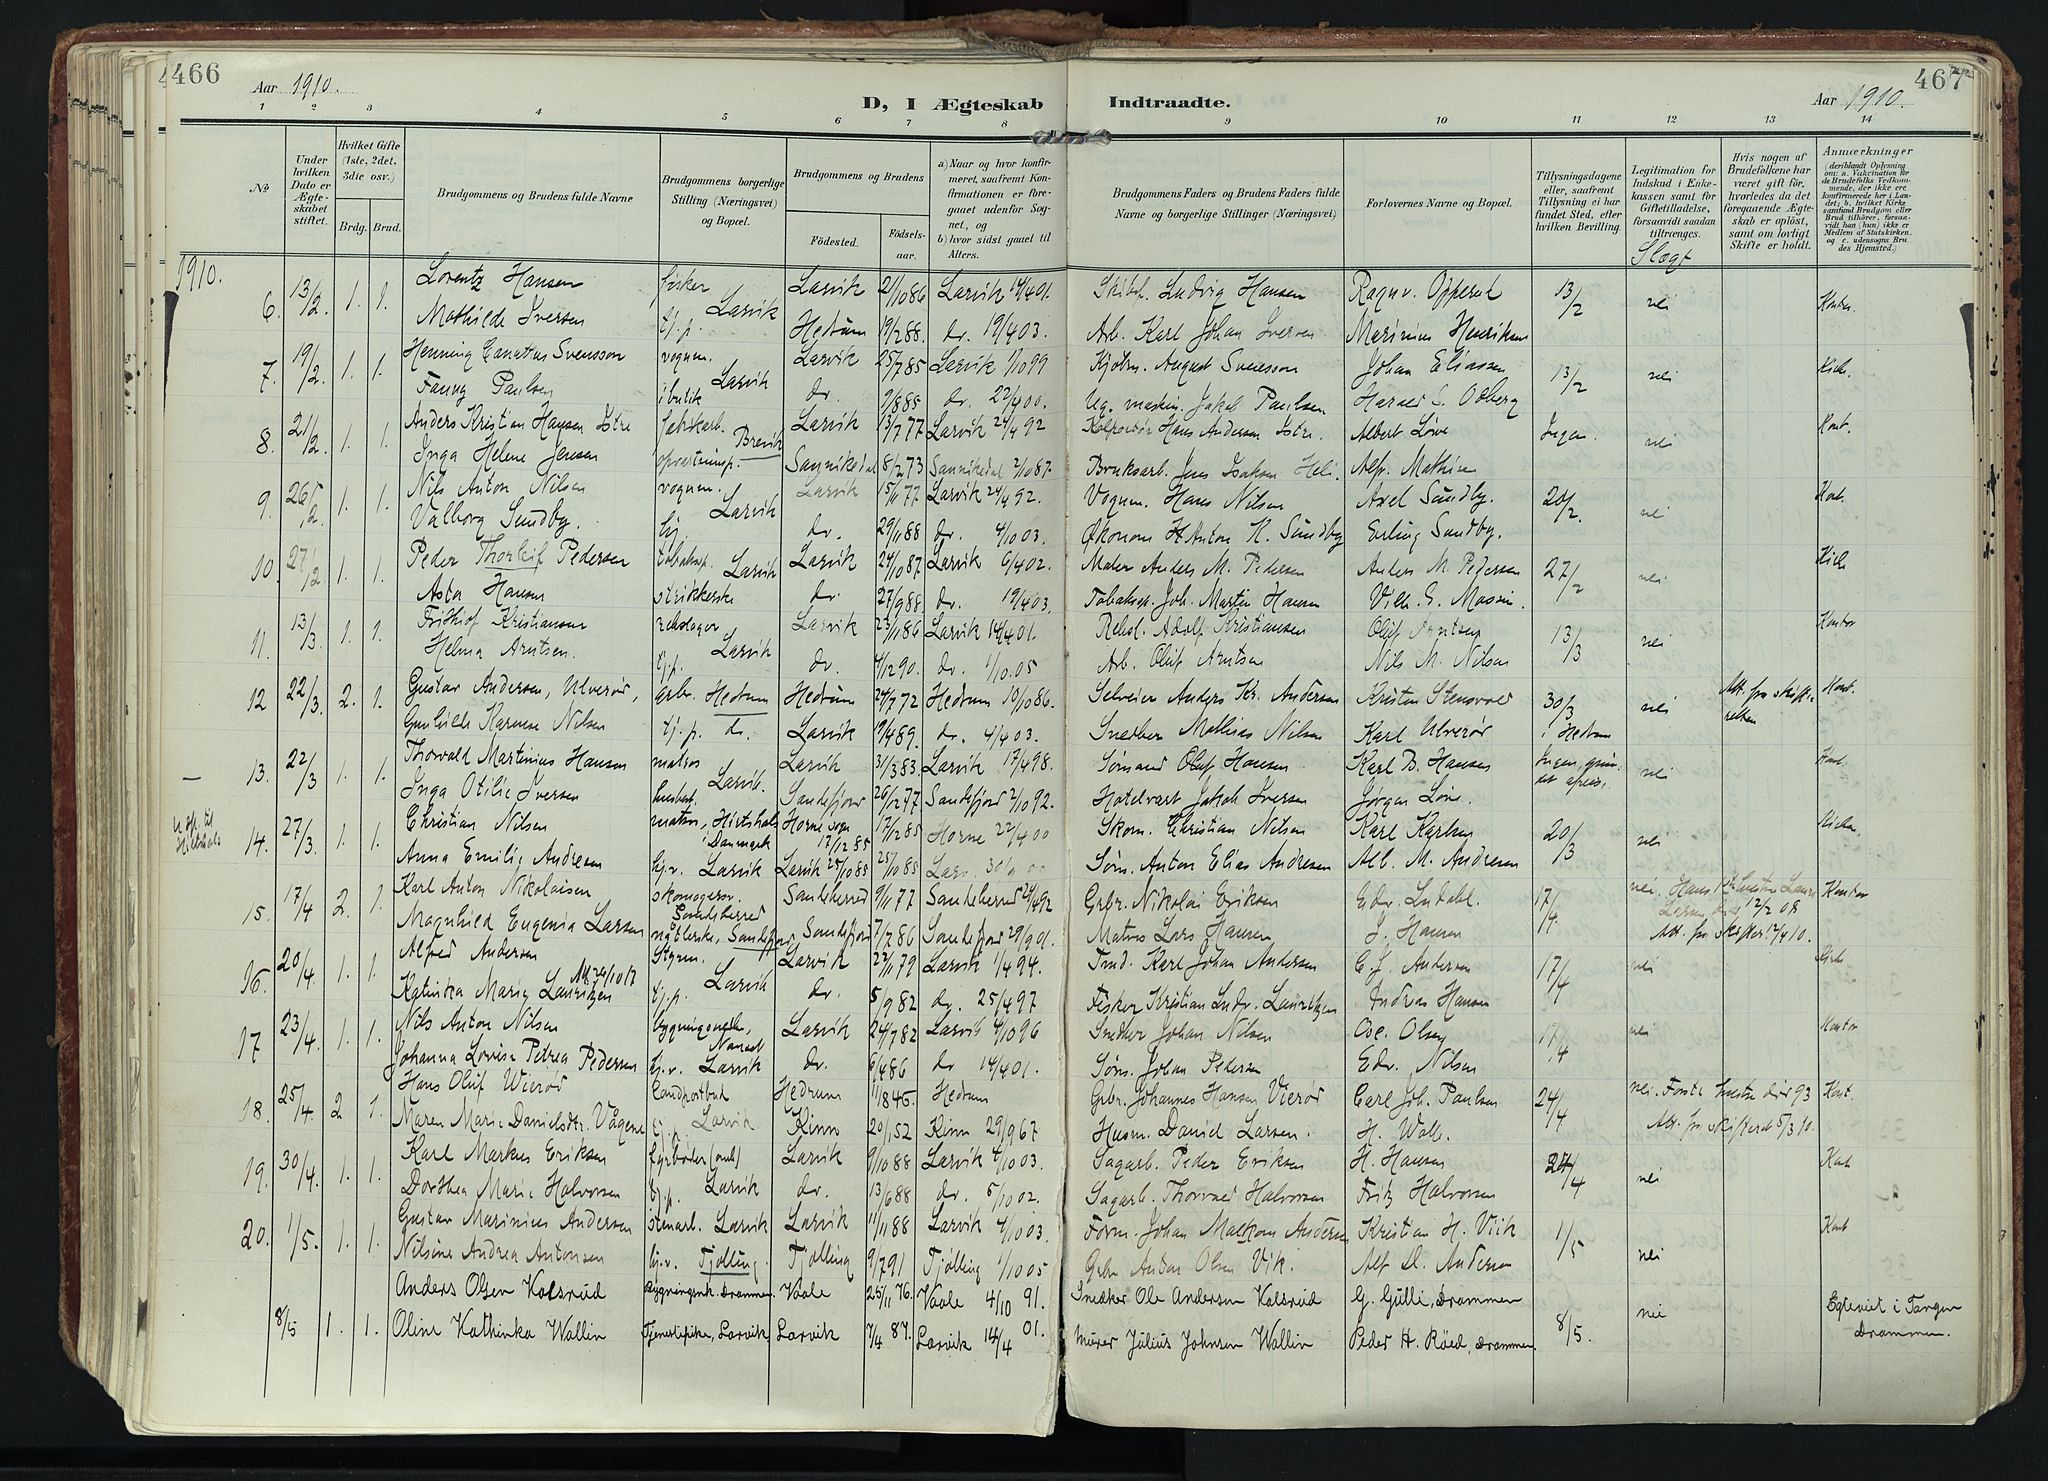 466
Aar 1910.
D, I Ægteskab Indtraadte.
Aar 1910.
467
1 2 3 4 5 6 7 8 9 10 11 12 13 14
No
Under hvilken Dato er Ægteskabet stiftet.
Hvilket Gifte (1ste, 2det, 3die osv.)
Brdg. Brud.
Brudgommens og Brudens fulde Navne
Brudgommens borgerlige Stilling (Næringsvei) og Bopæl.
Brudgommens og Brudens
Födested. Födsels-aar.
a) Naar og hvor konfirmeret, saafremt Konfirmationen er foregaaet udenfor Sognet, og
b) hvor sidst gaaet til Alters.
Brudgommens Faders og Brudens Faders fulde Navne og borgerlige Stillinger (Næringsvei)
Forlovernes Navne og Bopæl.
Tillysningsdagene eller, saafremt Tillysning ei har fundet Sted, efter hvilken Bevilling.
Legitimation for Indskud i Enkekassen samt for Giftetilladelse, forsaavidt saadan tiltrænges.
Slægt
Hvis nogen af Brudefolkene har været gift för, hvorledes da det foregaaende Ægteskab er oplöst, samt om lovligt Skifte er holdt.
Anmærkninger
(deriblandt Oplysning om: a. Vakcination for de Brudefolks Vedkommende, der ikke ere konfirmerede her i Landet; b. hvilket Kirkesamfund Brudgom eller Brud tilhörer, forsaavidt han (hun) ikke er Medlem af Statskirken, og c. udensogns Brudes Hjemsted.)
1910.
6. 13/2 1. 1. Lorentz Hansen fisker Larvik 21/10 86 Larvik 14/4 01. Ludvig Hansen Ragnv. Opperud 13/2 nei Kontor
Mathilde Iversen tj.p. Larvik Hedrum 19/2 88. do. 19/4 03. Arb. Karl Johan Iversen Marinius Henriksen
7. 19/2. 1. 1. Henning Svensson vognm. Larvik 25/7 85 Larvik 1/10 99 Kjøbm. August Svensson Johan Eliassen 13/2 nei Kirke.
Fanny Paulsen i butik Larvik do. 9/8 85 do. 22/4 00. Jakob Paulsen Harald S. Odberg
8. 21/2. 1. 1. Anders Kristian Hansen Istre fabrikarb. Larvik 13/7 77 Larvik 24/4 92 Hans Andersen Istre. Albert Løve Ingen. nei Kont.
Inga Helene Jensen Brevik Sannikedal 8/2 73 Sannikedal 2/10 87. Bruksarb. Jens Isaksen Heli. Alf. Mathisen
9. 26/2. 1. 1. Nils Anton Nilsen vognm. Larvik 15/11 77 Larvik 24/4 92. Vognm. Hans Nilsen Axel Sundby. 20/2. nei Kont.
Valborg Sundby. hj. Larvik do. 29/11 88 do. 4/10 03. Økonom H. Anton K. Sundby Erling Sundby.
10. 27/2 1. 1. Peder Thorleif Pedersen tobaksp. Larvik Larvik 24/10 87 Larvik 6/4 02. Maler Anders M. Pedersen Anders M. Pedersen 27/2 nei Kirke
Asta Hansen strikkerske do. 27/9 88 do. 19/4 03. Tobaksp. Joh. Martin Hansen Vilh. E. Massin.
11. 13/3 1. 1. Frithiof Kristiansen rebslager Larvik 23/11 86 Larvik 14/4 01. Rebsl. Adolf Kristiansen Oluf Arntsen 13/3 nei Kontor
Helma Arntsen. tj.p. Larvik do. 4/12 90. do. 1/10 05 Arb. Oluf Arntsen Nils M. Nilsen
12 22/3. 2. 1. Gustav Andersen, Ulverød, grbr. Hedrum Hedrum 24/7 72 Hedrum 10/10 86. Selveier Anders Kr. Andersen Kristen Stensvold 30/3 i Hedrum nei Att. fra skifteretten Kont.
Gunhilde Karense Nilsen tj.p. do. Larvik 9/4 89. do. 4/4 03. Snedker Mathias Nilsen Karl Ulverød
13. 22/3 1. 1. Thorvald Martinius Hansen matros Larvik 31/3 83 Larvik 17/4 98. Sømand Oluf Hansen Karl B. Hansen nei Kont.
Inga Otilie Iversen Larvik. Sandefjord 26/2 77 Sandefjord 2/10 92. Hotelvært Jakob Iversen Jørgen Løve.
14. 27/3. 1. 1. Christian Nilsen matros, Hirtshals i Danmark Horne sogn 17/12 85 17/12 85 Horne 22/4 00 Skom. Christian Nilsen Karl Karlsen 20/3 nei Kirken.
Anna Emilie Andresen hj.v. Larvik Larvik 25/10 85 25/10 85 Søm. Anton Elias Andresen Alb. M. Andresen
15. 17/4 2. 1. Karl Anton Nikolaisen skomagersv. Sandeherred Sandeherred 9/11 77 Sandeherred 24/4 92 Grbr. Nikolai Eriksen Edv. Lindahl. 17/4. nei. Hans 12/2 08 Kontor
Magnhild Eugenia Larsen Sandefjord Sandefjord 7/7 86 Sandefjord 29/9 01. Matros Lars Hansen J. Hansen Att. fra skifter. 12/4 10.
16. 20/4. 1. 1. Alfred Andersen Styrm. Larvik 22/11 79 Larvik 1/4 94. Karl Johan Andersen C. J. Andersen 17/4 nei Kirke
Katinka Marie Lauritzen tj.p. Larvik do. 5/9 82 do. 25/4 97 Fisker Kristian Ludv. Lauritzen Andreas Hansen
17 23/4. 1. 1. Nils Anton Nilsen Larvik 24/7 82 Larvik 4/10 96 Snedker Johan Nilsen Ole Olsen 17/4 nei Kontor
Johanna Lovise Petrea Pedersen hj.v. Larvik do. 6/4 86 do 14/4 01. Søm. Johan Pedersen Edv. Nilsen
18. 25/4. 2 1. Hans Oluf Wierød Landpostbud Hedrum 11/8 45. Hedrum Grbr. Johannes Hansen Vierød Carl Joh. Paulsen 24/4 nei. Første hustru død 93 Kont.
Maren Marie Danielsdtr. Vågene tj.p. Larvik Kinn 20/1 52 Kinn 29/9 67 Husm. Daniel Larsen. H. Wall. Att. fra skifteret 5/3 10.
19. 30/4. 1. 1. Karl Markus Eriksen fyrbøder Larvik 9/10 88 Larvik 4/10 03. Sagarb. Peder Eriksen H. Hansen 24/4 nei Kont
Dorthea Marie Halvorsen tj.p. Larvik do. 13/6 88 do. 5/10 02. Sagarb. Thorvald Halvorsen Fritz Halvorsen
20. 1/5. 1. 1. Gustav Marinius Andersen stenarb. Larvik Larvik 11/11 88 Larvik 4/10 03. Form. Johan Malkom Andersen Kristian H. Viik 1/5 nei Kont
Nilsine Andrea Antonsen hj.v. Tjølling. Tjølling 9/7 91 Tjølling 1/10 05 Grbr Anton Olsen Vik. Alf D. Andersen
8/5 1. 1. Anders Olsen Kolsrud Bygningssnk. Drammen. Vaale 25/11 76. Vaale 4/10 91. Snedker Ole Andersen Kolsrud G. Gulli, Drammen 8/5. nei Egteviet i Tangen Drammen.
Oline Kathinka Wallin Tjenestepike, Larvik Larvik 7/4 87. Larvik 14/4 01. Murer Julius Johnsen Wallin Peder H. Røed, Drammen